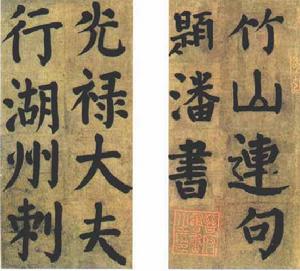 竹山連句
題潘書
光禄大夫
行湖州刺